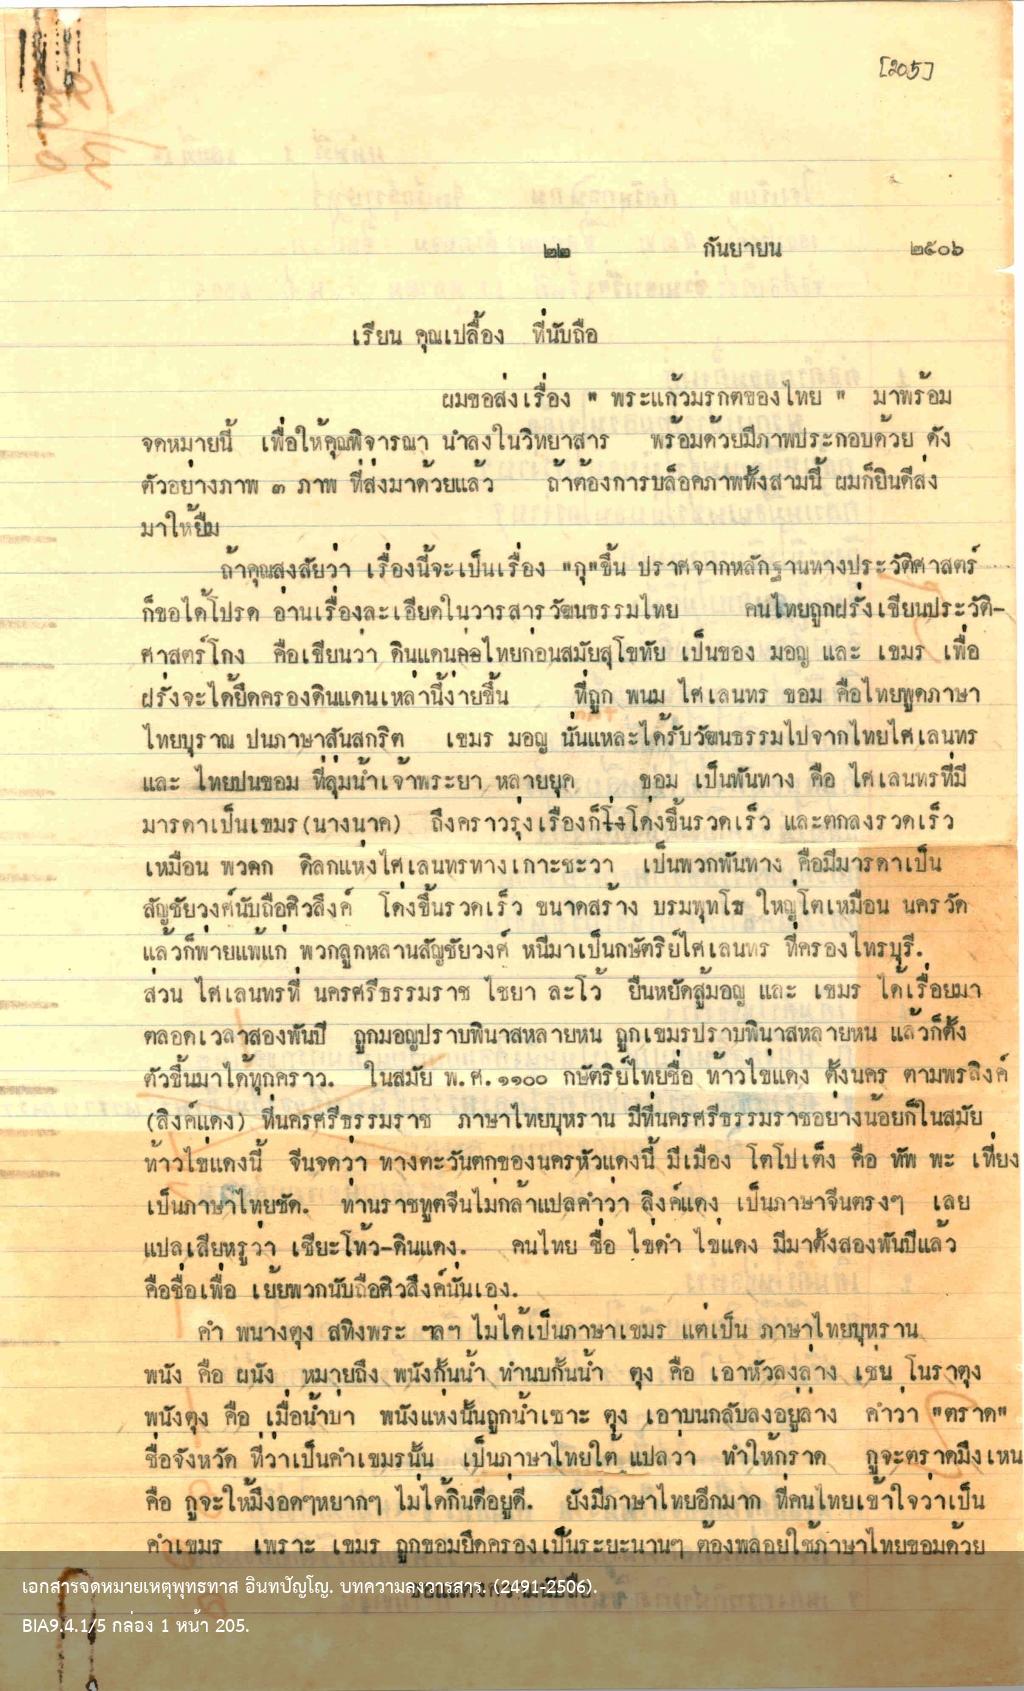 [205]
๒๒ กันยายน ๒๕๐๖
เรียน คุณเปลื้อง ที่นับถือ
ผมขอส่งเรื่อง " พระแก้วมรกตของไทย " มาพร้อม
จดหมายนี้ เพื่อให้คุณพิจารณา นำลงในวิทยาสาร พร้อมด้วยมีภาพประกอบด้วย ดัง
ตัวอย่างภาพ ๓ ภาพ ที่ส่งมาด้วยแล้ว ถ้าต้องการบล็อคภาพทั้งสามนี้ ผมก็ยินดีส่ง
มาให้ยืม
ถ้าคุณสงสัยว่า เรื่องนี้จะเป็นเรื่อง "กุ"ขึ้น ปราศจากหลักฐานทางประวัติศาสตร์
ก็ขอได้โปรด อ่านเรื่องละเอียดในวารสารวัฒนธรรมไทย คนไทยถูกฝรั่งเขียนประวัติ-
ศาสตร์โกง คือเขียนว่า ดินแดนไทยก่อนสมัยสุโขทัย เป็นของ มอญ และ เขมร เพื่อ
ฝรั่งจะได้ยึดครองดินแดนเหล่านี้ง่ายขึ้น ที่ถูก พนม ไศเลนทร ขอม คือไทยพูดภาษา
ไทยบุราณ ปนภาษาสันสกริต เขมร มอญ นั่นแหละได้รับวัฒนธรรมไปจากไทยไศเลนทร
และ ไทยปนขอม ที่ลุ่มน้ำเจ้าพระยา หลายยุค ขอม เป็นพันทาง คือ ไศเลนทรที่มี
มารดาเป็นเขมร(นางนาค) ถึงคราวรุ่งเรืองก็โด่งขึ้นรวดเร็ว และตกลงรวดเร็ว
เหมือน พวกดิลกแห่งไศเลนทรทางเกาะชะวา เป็นพวกพันทาง คือมีมารดาเป็น
สัญชัยวงศ์นับถือศิวลึงค์ โด่งขึ้นรวดเร็ว ขนาดสร้าง บรมพุทโธ ใหญ่โตเหมือน นครวัด
แล้วก็พ่ายแพ้แก่ พวกลูกหลานสัญชัยวงศ์ หนีมาเป็นกษัตริย์ไศเลนทร ที่ครองไทรบุรี.
ส่วน ไศเลนทรที่ นครศรีธรรมราช ไชยา ละโว้ ยืนหยัดสู้มอญ และ เขมร ได้เรื่อยมา
ตลอดเวลาสองพันปี ถูกมอญปราบพินาสหลายหน ถูกเขมรปราบพินาสหลายหน แล้วก็ตั้ง
ตัวขึ้นมาได้ทุกคราว. ในสมัย พ.ศ.๑๑๐๐ กษัตริย์ไทยชื่อ ท้าวไข่แดง ตั้งนคร ตามพรลิงค์
(ลิงค์แดง) ที่นครศรีธรรมราช ภาษาไทยบุหราน มีที่นครศรีธรรมราชอย่างน้อยก็ในสมัย
ท้าวไข่แดงนี้ จีนจดว่า ทางตะวันตกของนครหัวแดงนี้ มีเมือง โตโปเต็ง คือ ทัพ พะ เที่ยง
เป็นภาษาไทยชัด. ท่านราชทูตจีนไม่กล้าแปลคำว่า ลิงค์แดง เป็นภาษาจีนตรงๆ เลย
แปลเสียหรูว่า เชียะโท้ว-ดินแดง. คนไทย ชื่อ ไข่ดำ ไข่แดง มีมาตั้งสองพันปีแล้ว
คือชื่อเพื่อ เย้ยพวกนับถือศิวลึงค์นั่นเอง.
คำ พนางตุง สทิงพระ ฯลฯ ไม่ได้เป็นภาษาเขมร แต่เป็น ภาษาไทยบุหราน
พนัง คือ ผนัง หมายถึง พนังกั้นน้ำ ทำนบกั้นน้ำ ตุง คือ เอาหัวลงล่าง เช่น โนราตุง
พนังตุง คือ เมื่อน้ำบ่า พนังแห่งนั้นถูกน้ำเซาะ ตุง เอาบนกลับลงอยู่ล่าง คำว่า "ตราด"
ชื่อจังหวัด ที่ว่าเป็นคำเขมรนั้น เป็นภาษาไทยใต้ แปลว่า ทำให้กราด กูจะตราดมึงเหน
คือ กูจะให้มึงอดๆหยากๆ ไม่ได้กินดีอยู่ดี. ยังมีภาษาไทยอีกมาก ที่คนไทยเข้าใจว่าเป็น
คำเขมร เพราะ เขมร ถูกขอมยึดครองเป็นระยะนานๆ ต้องพลอยใช้ภาษาไทยขอมด้วย
เอกสารจดหมายเหตุพุทธทาส อินทปัญโญ. บทความลงวารสาร. (2491-2506).
BIA9.4.1/5 กล่อง 1 หน้า 205.